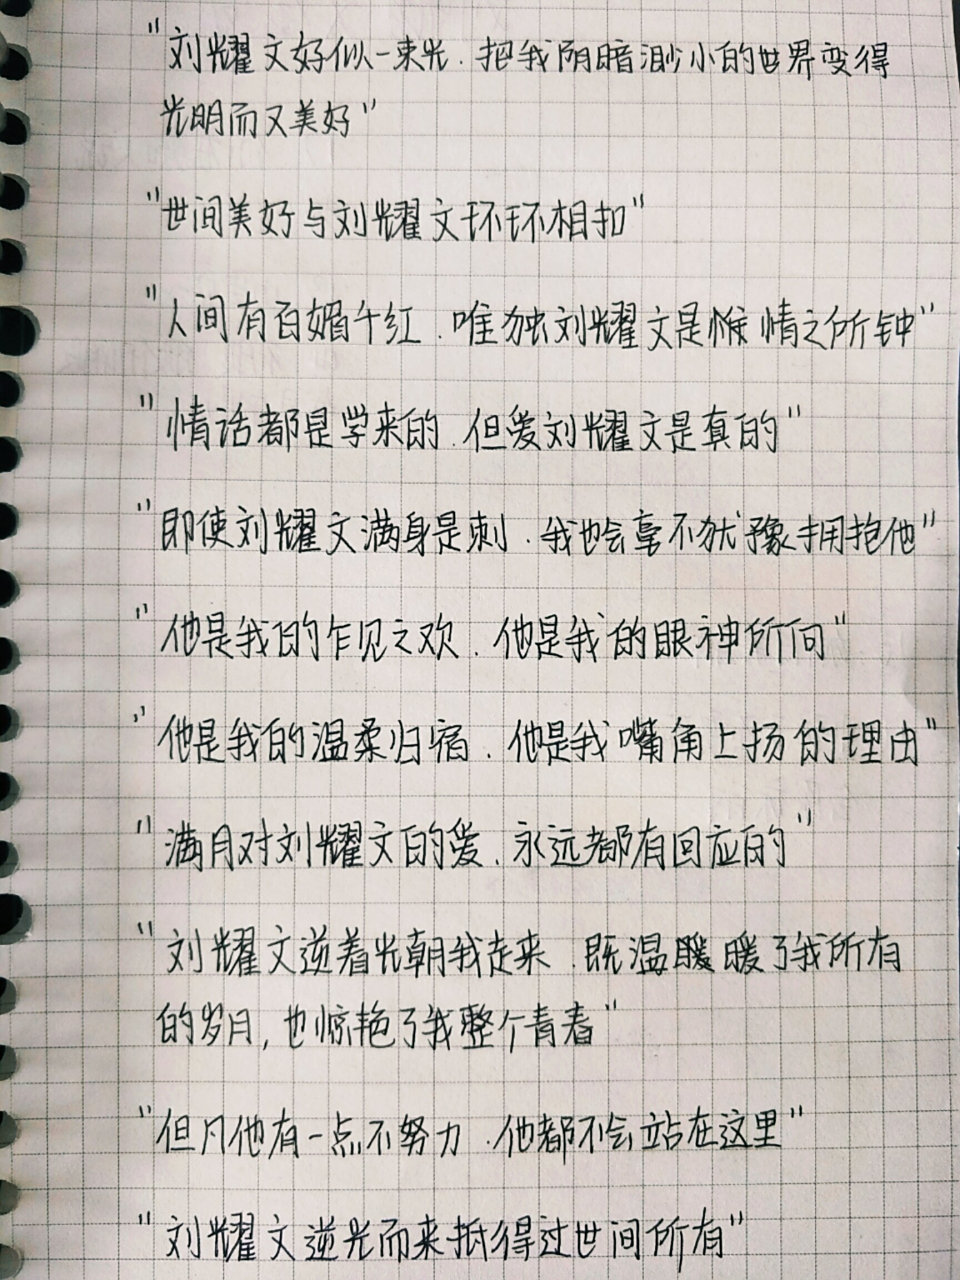 "刘耀文好似一束光.把我阴暗渺小的世界变得
光明而又美好"
"世间美好与刘耀文环环相扣"
"人间有百媚千红.唯独刘耀文是情之所钟"
"情话都是学来的.但爱刘耀文是真的"
"即使刘耀文满身是刺.我也会毫不犹豫拥抱他"
"他是我的乍见之欢.他是我的眼神所向"
"他是我的温柔归宿.他是我嘴角上扬的理由"
"满月对刘耀文的爱.永远都有回应的"
"刘耀文逆着光朝我走来.既温暖暖了我所有
的岁月,也惊艳了我整个青春"
"但凡他有一点不努力.他都不会站在这里"
"刘耀文逆光而来抵得过世间所有"